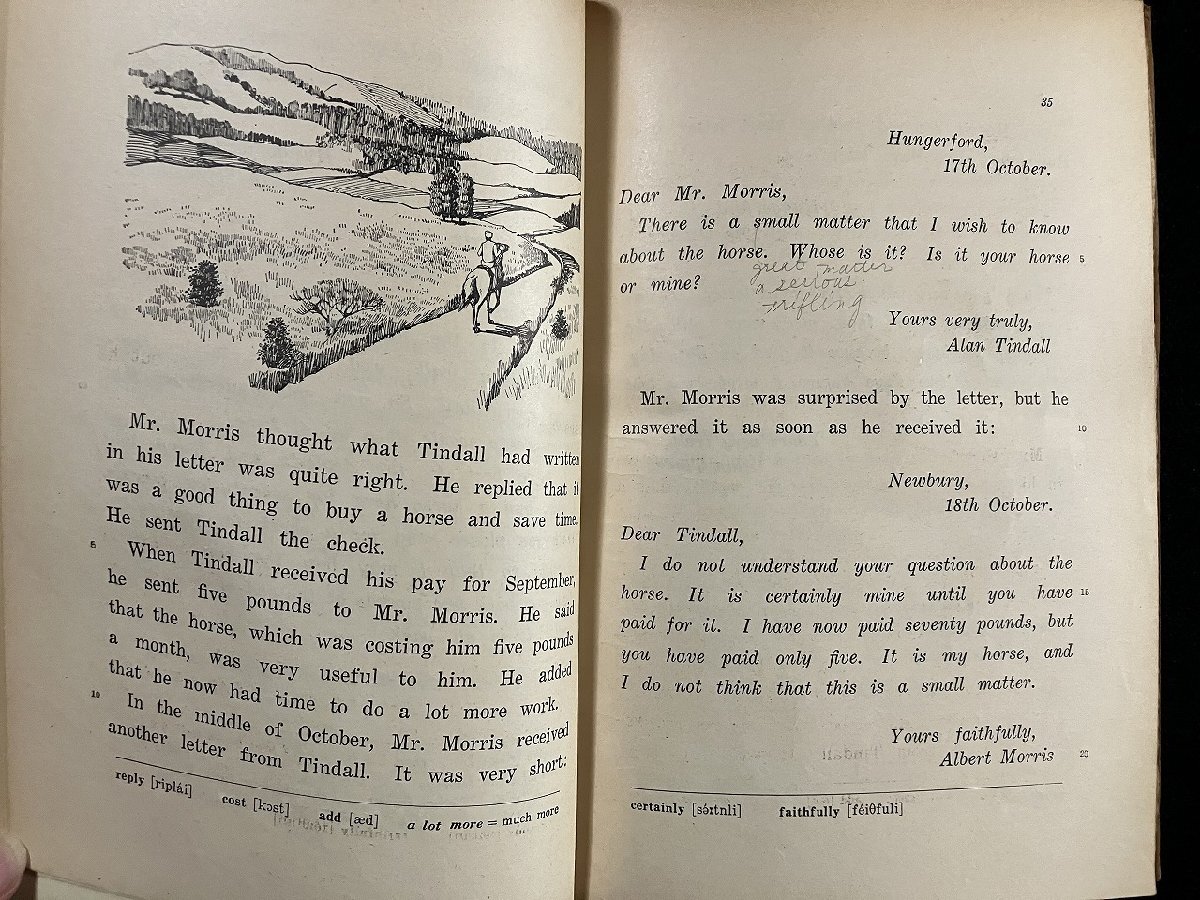 Mr. Morris thought what Tindall had written
in his letter was quite right. He replied that it
was a good thing to buy a horse and save time.
He sent Tindall the check.
5 When Tindall received his pay for September,
he sent five pounds to Mr. Morris. He said
that the horse, which was costing him five pounds
a month, was very useful to him. He added
that he now had time to do a lot more work.
10 In the middle of October, Mr. Morris received
another letter from Tindall. It was very short:
reply [riplái] cost [kɔst] add [æd] a lot more = much more
35
Hungerford,
17th October.
Dear Mr. Morris,
There is a small matter that I wish to know
about the horse. Whose is it? Is it your horse 5
great matter
or mine?
a serious
trifling
Yours very truly,
Alan Tindall
Mr. Morris was surprised by the letter, but he
answered it as soon as he received it: 10
Newbury,
18th October.
Dear Tindall,
I do not understand your question about the
horse. It is certainly mine until you have 15
paid for it. I have now paid seventy pounds, but
you have paid only five. It is my horse, and
I do not think that this is a small matter.
Yours faithfully,
Albert Morris 20
certainly [sə́ːtnli] faithfully [féiθfuli]